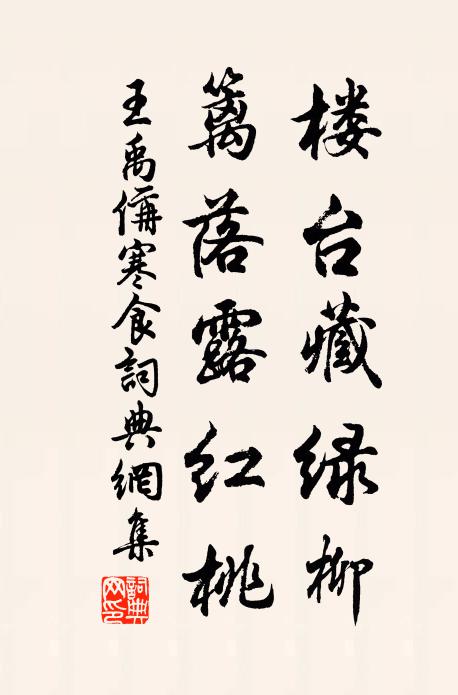 楼台藏绿柳
篱落露红桃
王禹偁寒食詞典網集
詞典网印